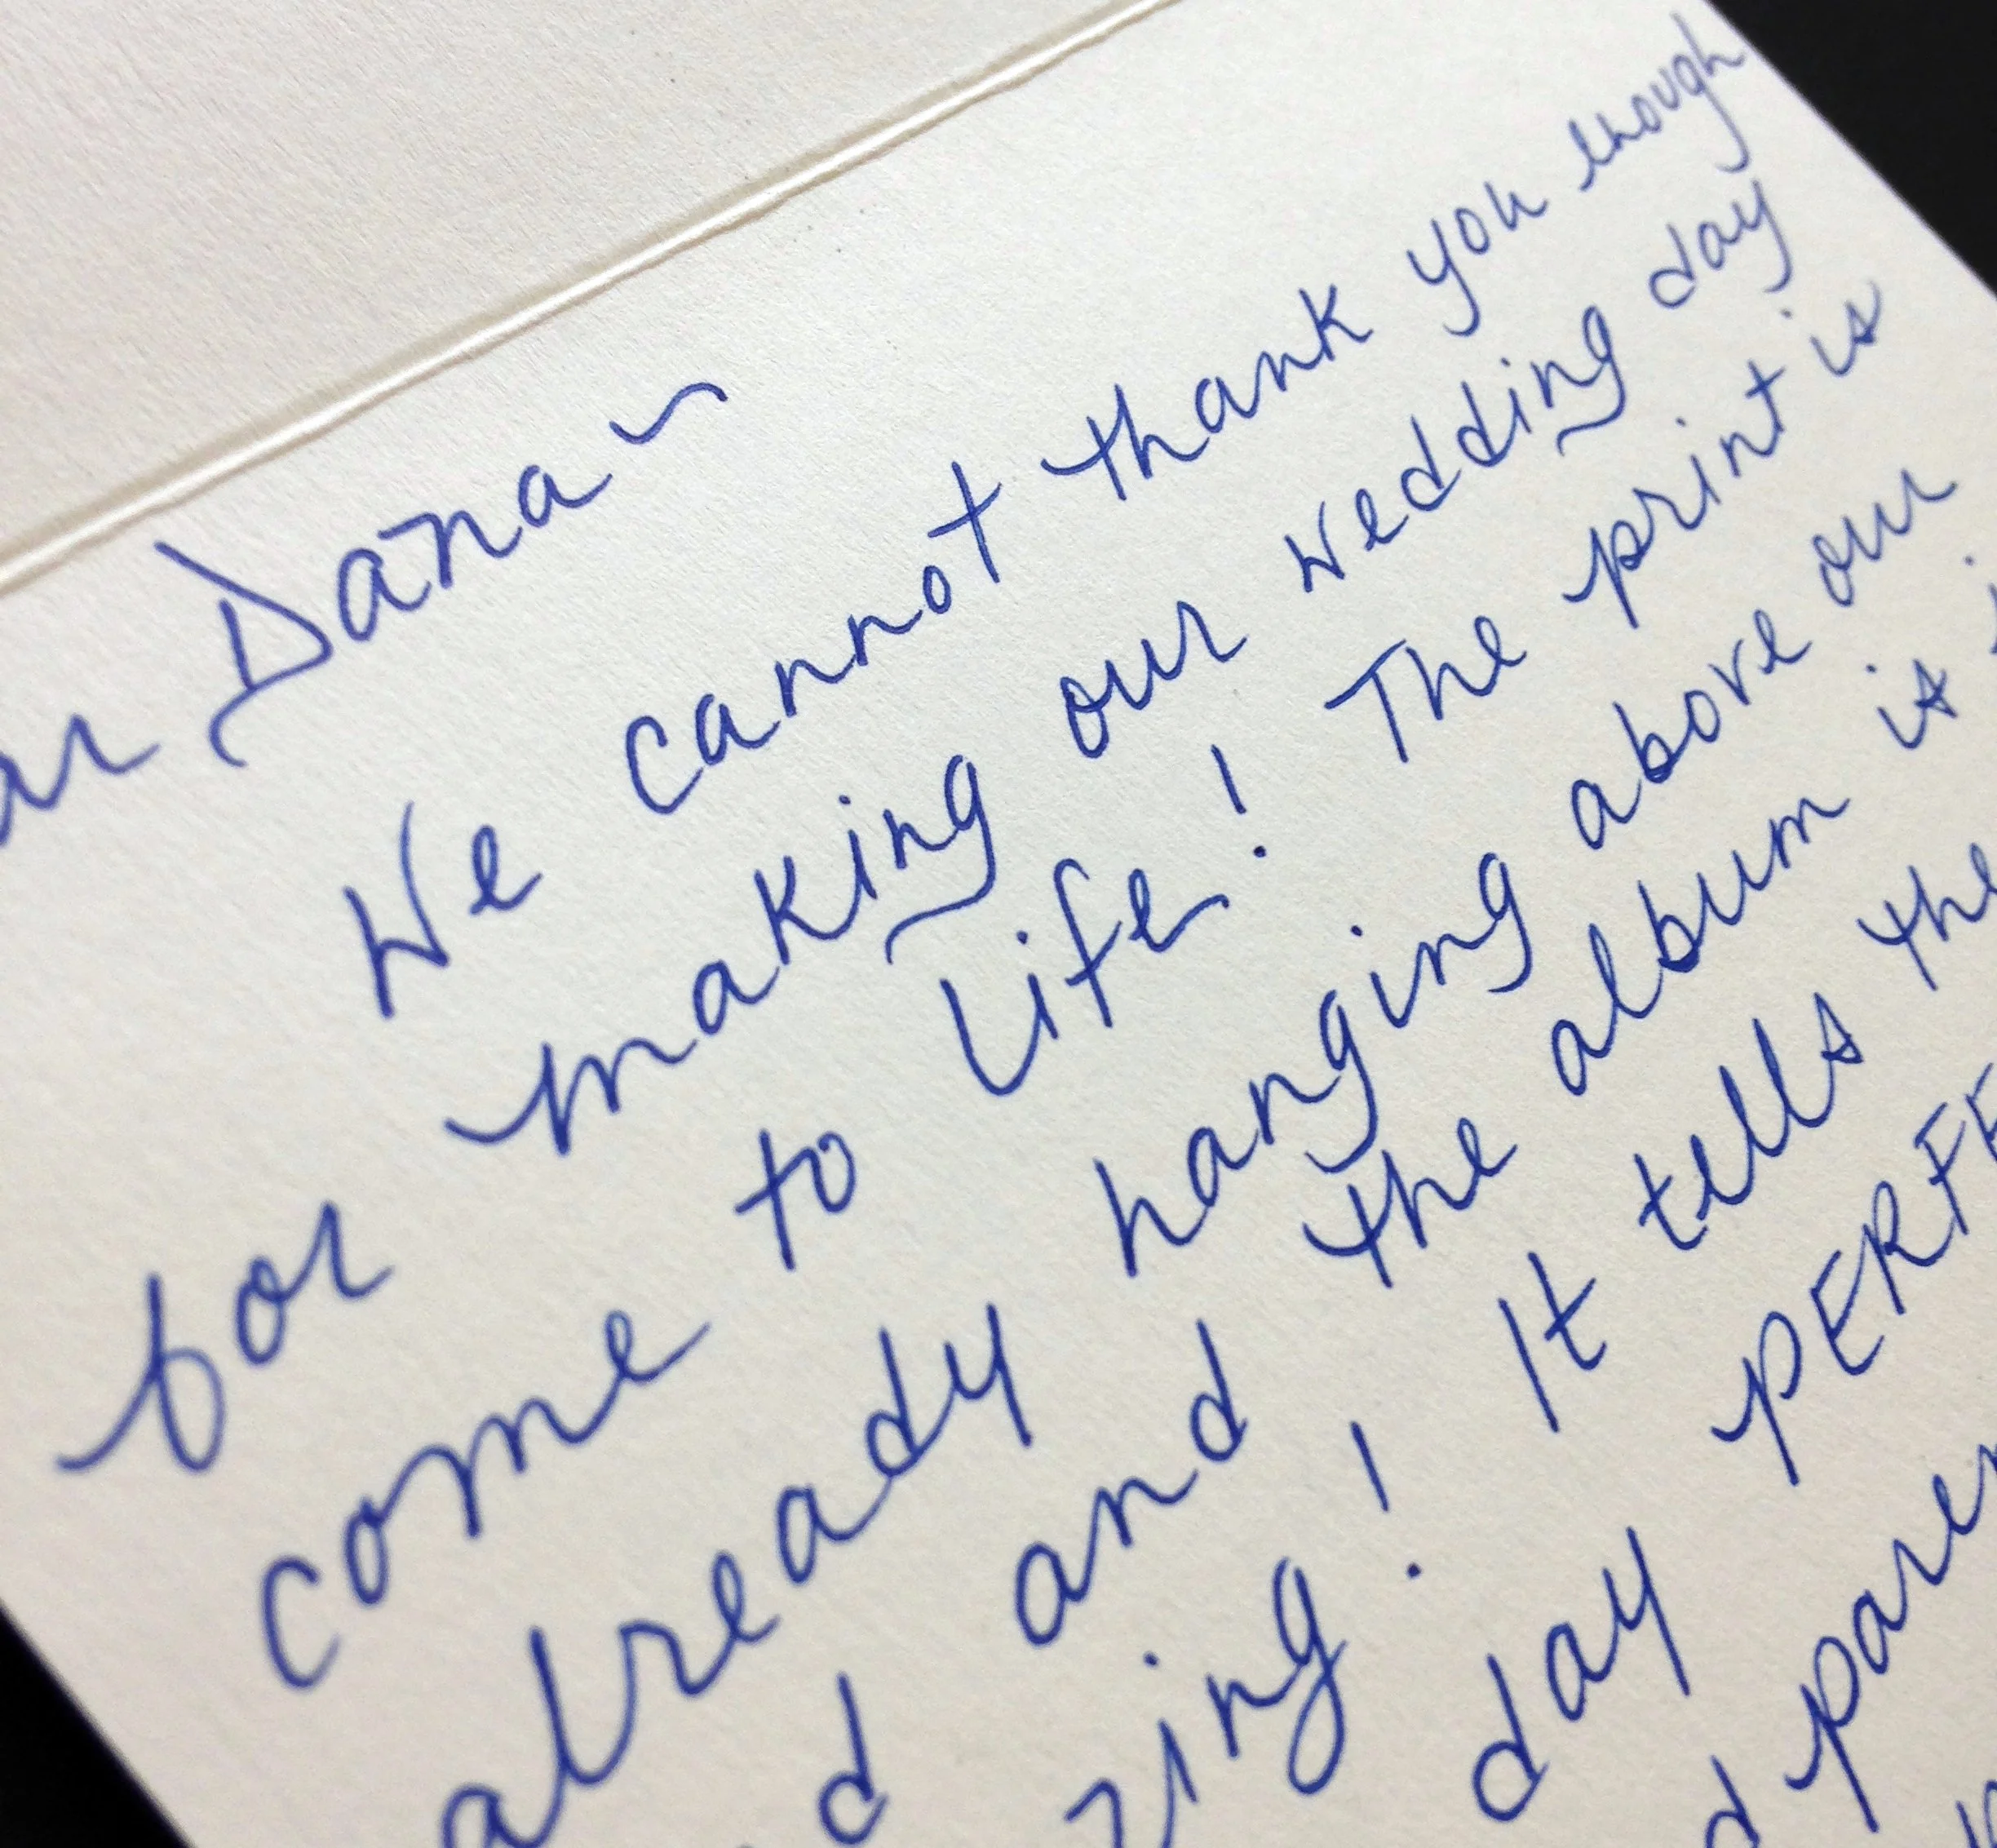 Dana~
We cannot thank you enough
for making our wedding day
come to life! The print is
already hanging above our
and the album is
It tells the
day